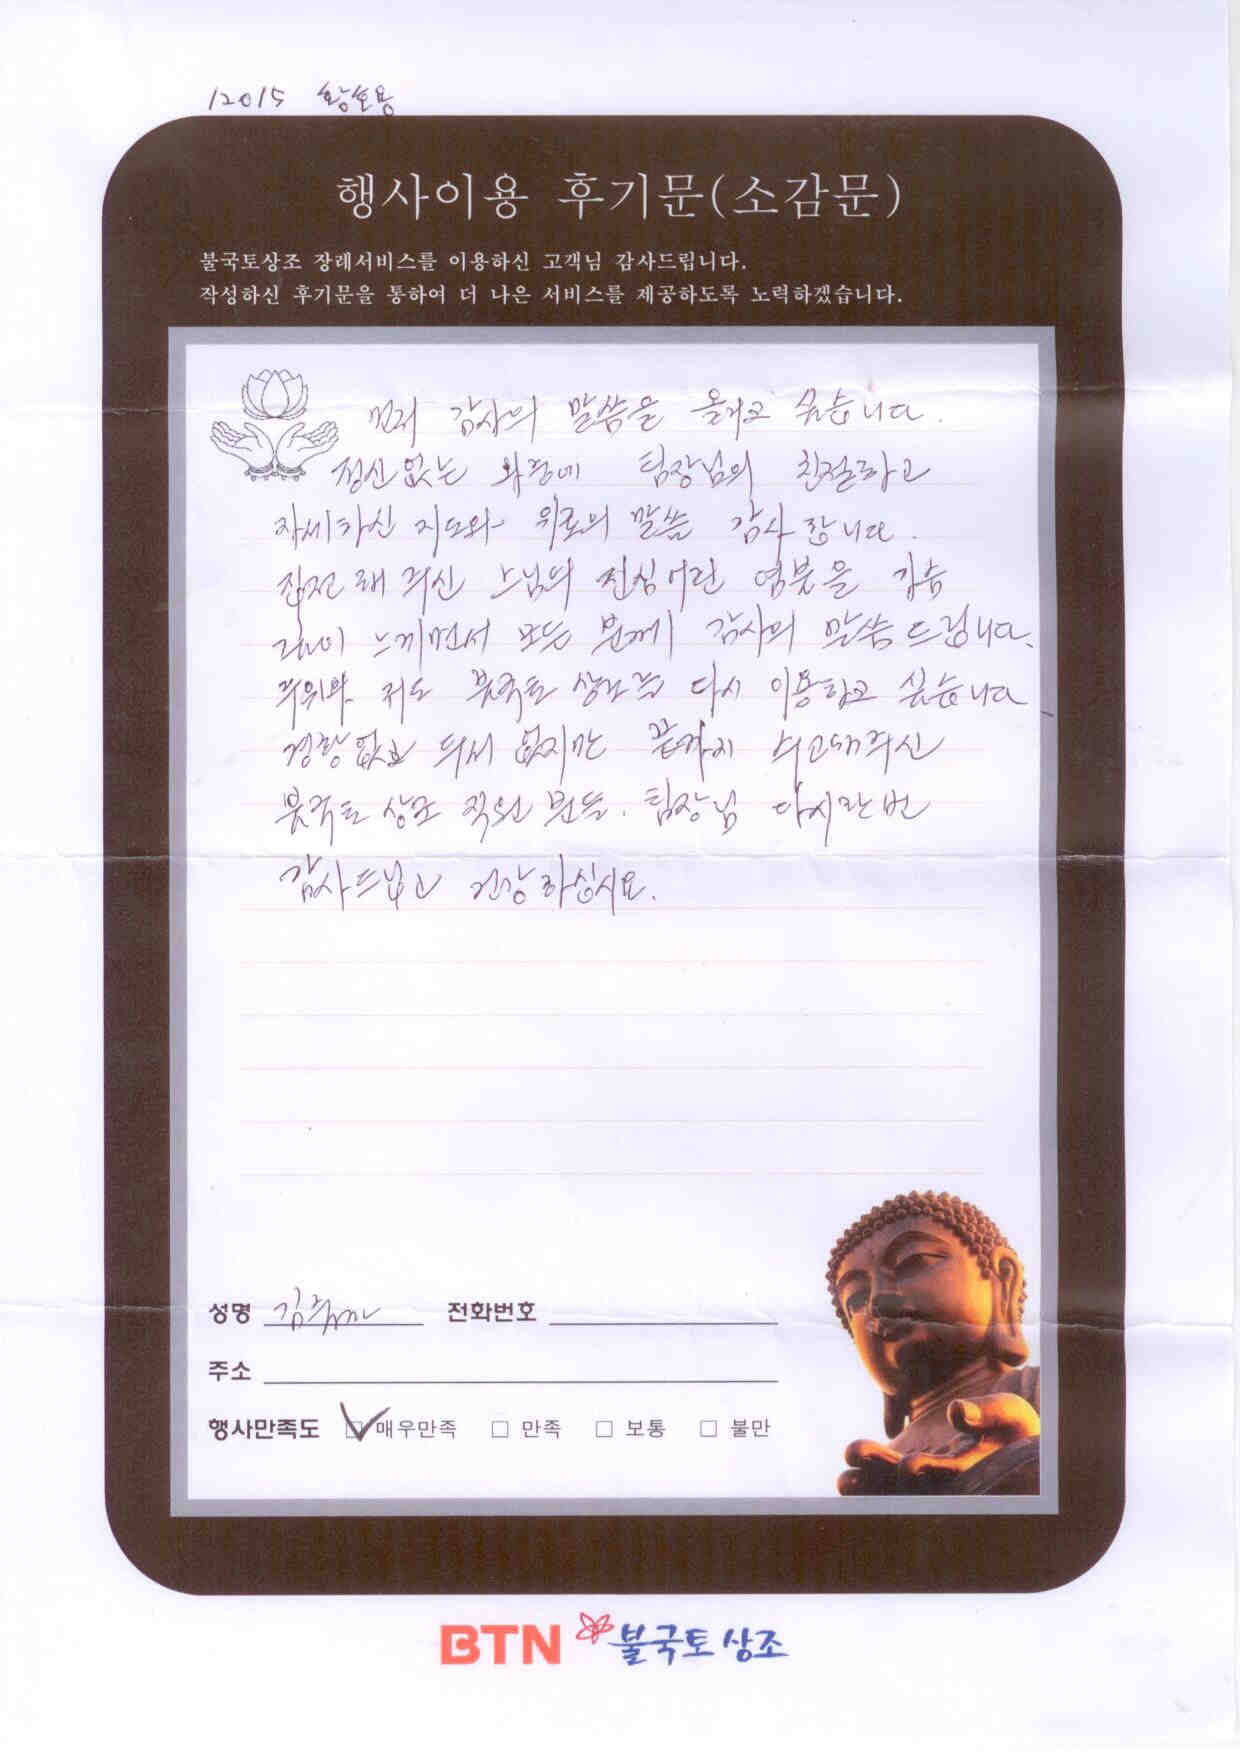 12015 황호용
행사이용 후기문(소감문)
불국토상조 장례서비스를 이용하신 고객님 감사드립니다.
작성하신 후기문을 통하여 더 나은 서비스를 제공하도록 노력하겠습니다.
먼저 감사의 말씀을 올리고 싶습니다.
정신없는 와중에 팀장님의 친절하고
자세하신 지도와 위로의 말씀 감사합니다.
집전해 주신 스님의 진심어린 염불을 가슴
깊이 느끼면서 모든 분께 감사의 말씀드립니다.
주위와 저도 불국토 상조를 다시 이용하고 싶습니다
경황없고 두서 없지만 끝까지 수고해주신
불국토 상조 직원 분들. 팀장님 다시한번
감사드리고 건강하십시요.
성명 김 전화번호
주소
행사만족도 ☑ 매우만족 □ 만족 □ 보통 □ 불만
BTN 불국토 상조